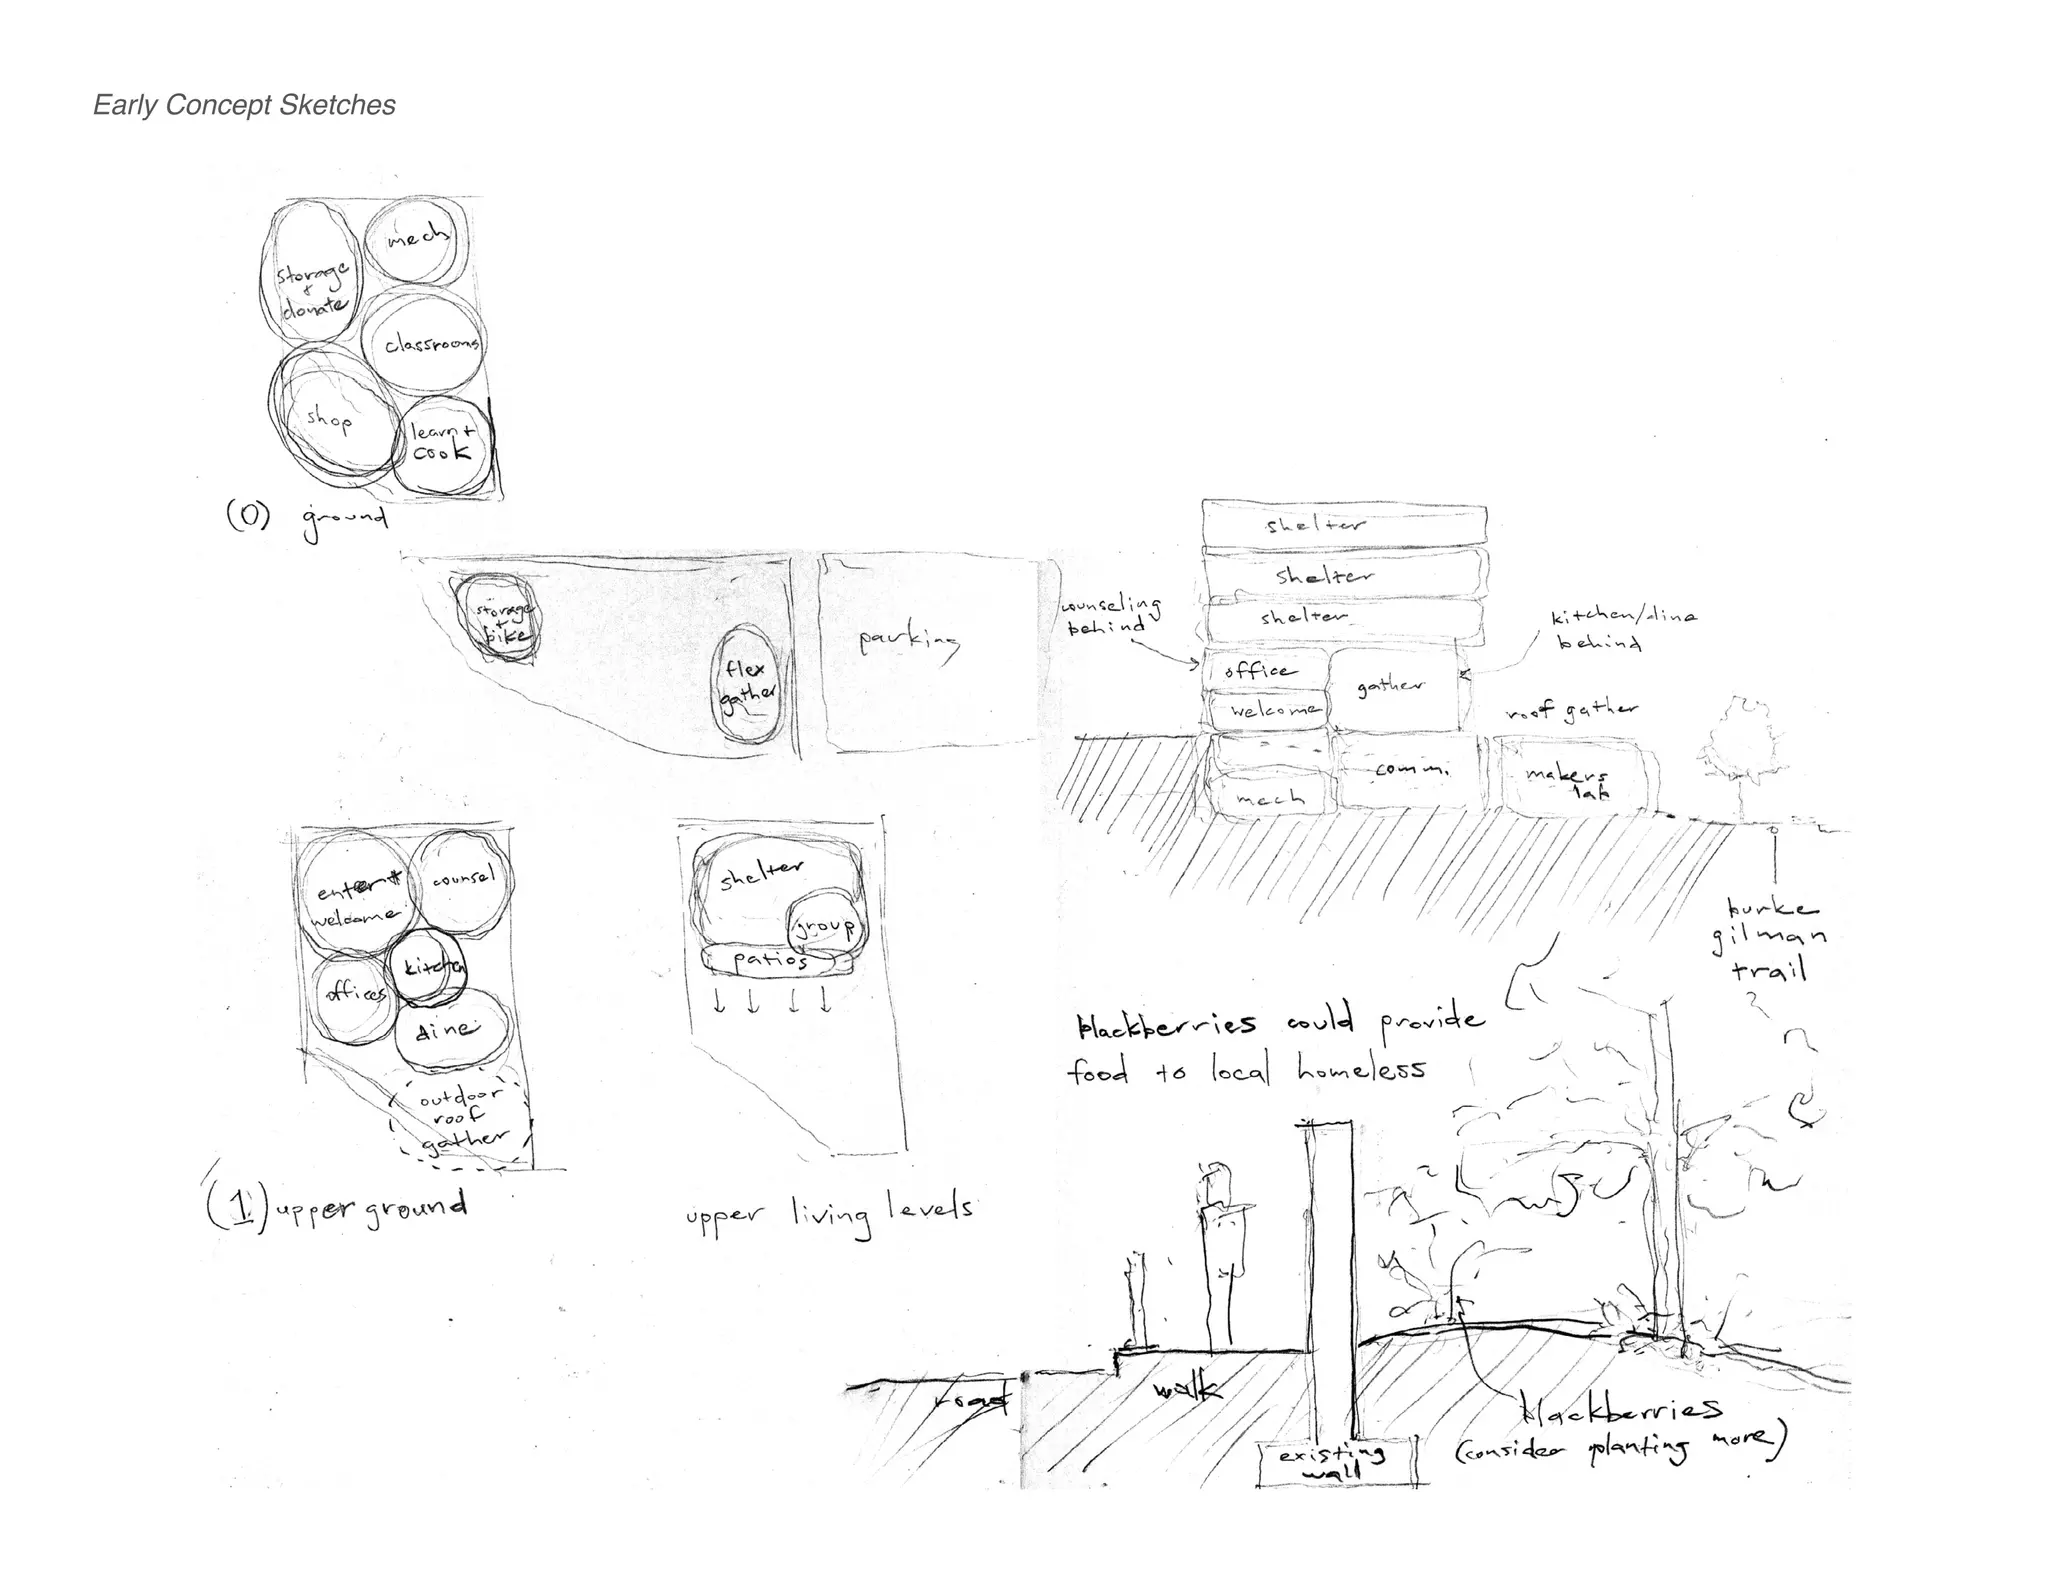 Early Concept Sketches
mech
storage
+
donate
classrooms
shop
learn +
cook
(0) ground
storage
+
bike
flex
gather
parking
shelter
shelter
shelter
counseling
behind
kitchen/dine
behind
office
gather
welcome
roof gather
comm.
makers
lab
mech
burke
gilman
trail
enter +
welcome
counsel
kitchen
offices
dine
outdoor
roof
gather
(1) upper ground
shelter
group
patios
upper living levels
blackberries could provide
food to local homeless
road
walk
existing
wall
blackberries
(consider planting more)